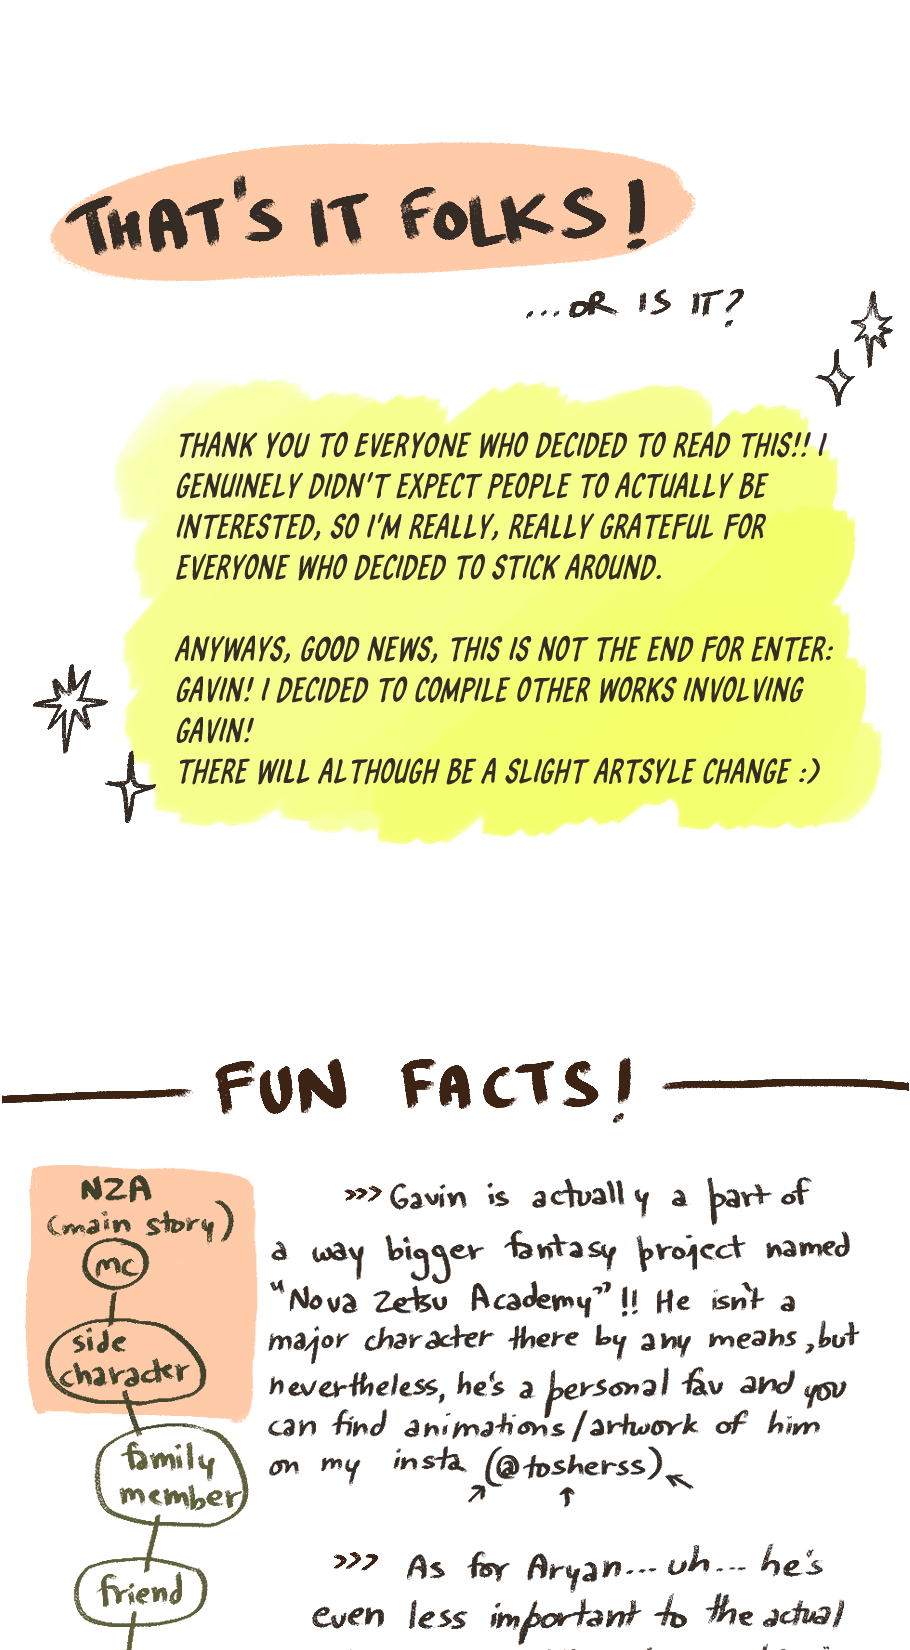 THAT'S IT FOLKS!
...OR IS IT?
THANK YOU TO EVERYONE WHO DECIDED TO READ THIS!! I
GENUINELY DIDN'T EXPECT PEOPLE TO ACTUALLY BE
INTERESTED, SO I'M REALLY, REALLY GRATEFUL FOR
EVERYONE WHO DECIDED TO STICK AROUND.
ANYWAYS, GOOD NEWS, THIS IS NOT THE END FOR ENTER:
GAVIN! I DECIDED TO COMPILE OTHER WORKS INVOLVING
GAVIN!
THERE WILL ALTHOUGH BE A SLIGHT ARTSYLE CHANGE :)
FUN FACTS!
NZA
(main story)
mc
side
character
family
member
friend
>>> Gavin is actually a part of
a way bigger fantasy project named
"Nova Zetsu Academy"!! He isn't a
major character there by any means, but
nevertheless, he's a personal fav and you
can find animations/artwork of him
on my insta (@tosherss)
>>> As for Aryan... uh... he's
even less important to the actual